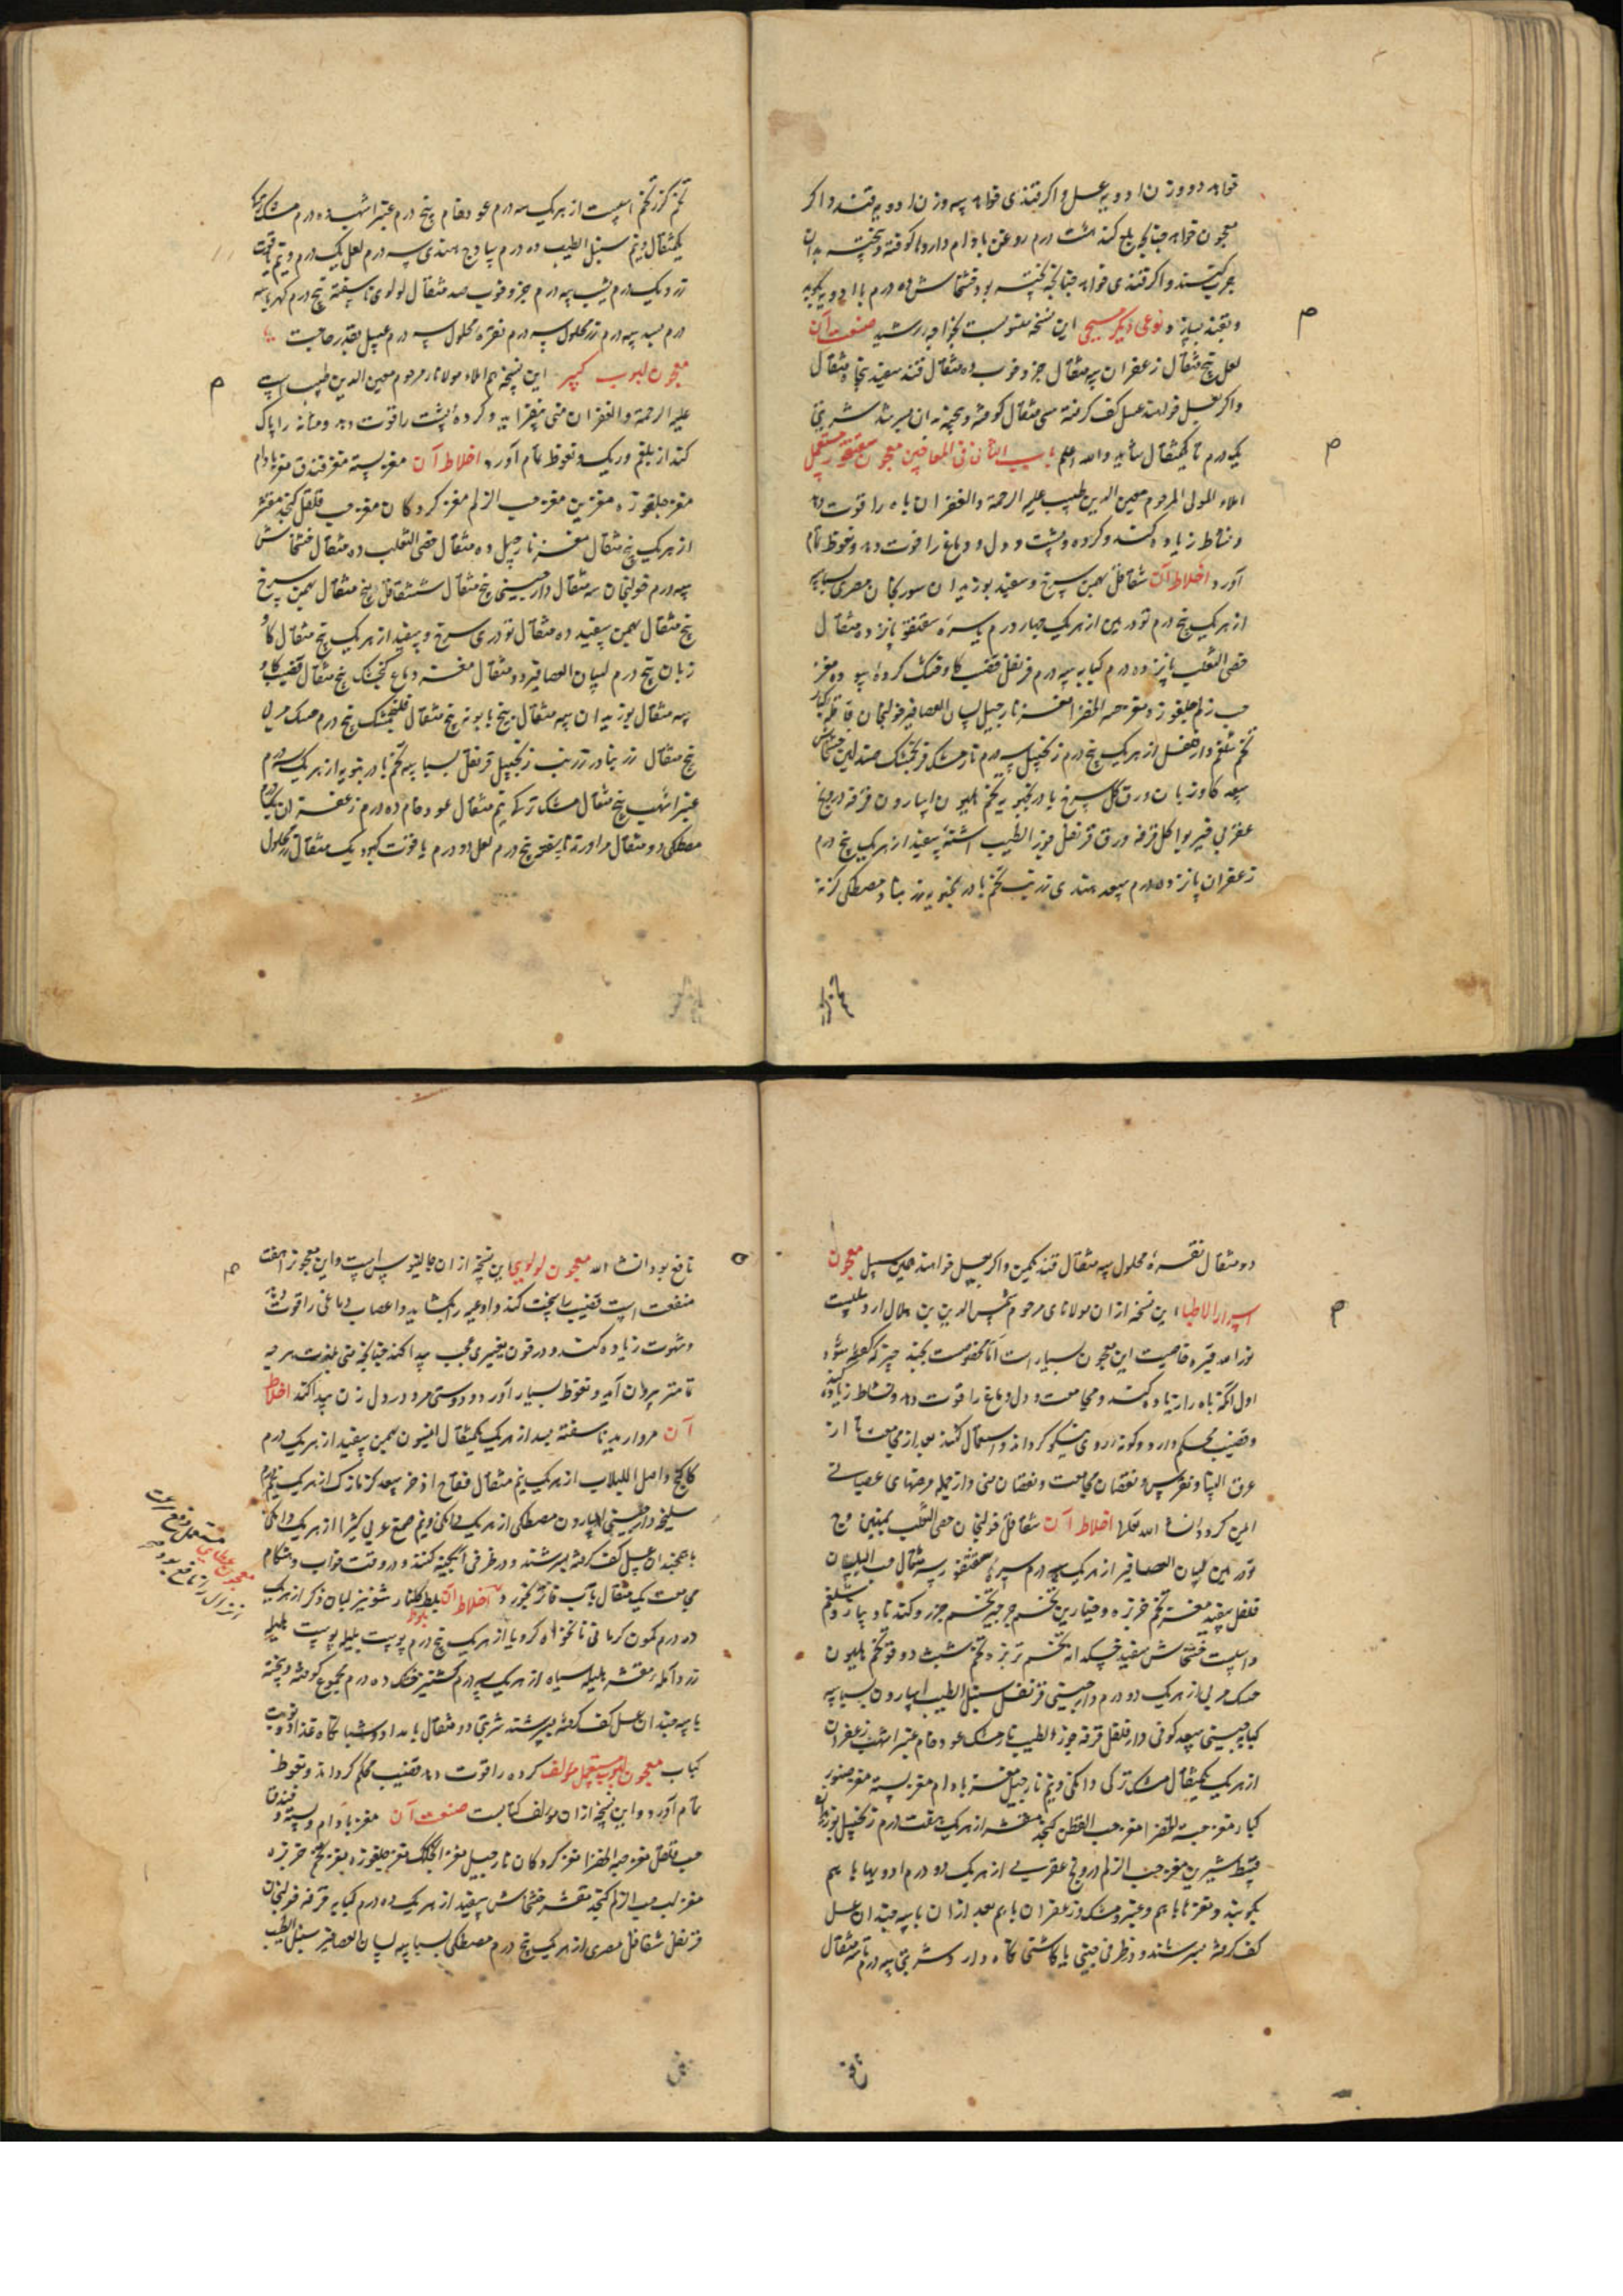 خواهد دو وزن ادویه عسل و اگر قندی خواهد سه وزن ادویه قند و اگر
معجون خواهد چنانکه پلچ کند هشت درم روغن بادام داروها کوفته و بیخته بدان
چرب کنند و اگر قندی خواهد چنانچه پخته بود خشخاش ده درم با ادویه بکوبد
و بقند بسازد نوعی دیگر مسیحی این نسخه منسوبست بخواجه رشید صنعت آن
لعل پنج مثقال زعفران سه مثقال جزو خوب ده مثقال قند سفید پنجاه مثقال
و اگر بعسل خواهند عسل کف گرفته سی مثقال کوفته و بیخته بدان بسرشند شربتی
یک درم تا یکمثقال شاید والله اعلم باب الثانی فی المعاجین معجون سقنقور مستعمل
املاء المولی المرحوم معین الدین طبیب علیه الرحمة والغفران باه را قوت دهد
و نشاط زیاده کند و گرده و پشت و دل و دماغ را قوت دهد و نعوظ تمام
آورد اخلاط آن شقاقل بهمن سرخ و سفید بوزیدان سورنجان مصری بسباسه
از هر یک پنج درم تودرین از هر یک چهار درم سره سقنقور پانزده مثقال
خصی الثعلب پانزده درم کبابه سه درم قرنفل قضیب گاو خشک کرده
حب زلم چلغوزه مغز حبه الخضرا مغز نارجیل لسان العصافیر خولنجان قاقله کبار
تخم شلغم دارفلفل از هر یک پنج درم زنجبیل سه درم نارمشک فرنجمشک صندلین خشخاش
سعد گاوزبان ورق گل سرخ بادرنجبویه تخم هلیون اسارون قرفه درونج
عقربی خیربوا گل قرفه ورق قرنفل جوز الطیب اشنه سفید از هر یک پنج درم
زعفران پانزده درم سعد هندی زرنب تخم بادرنجبویه زرنباد مصطکی گزنه
تخم گزر تخم اسپست از هر یک سه درم عود خام پنج درم عنبر اشهب ده درم مشک
یکمثقال و نیم سنبل الطیب ده درم ساذج هندی سه درم لعل یک درم و نیم یاقوت
زرد یکدرم یشب سه درم جزو خوب صد مثقال لولوی ناسفته پنج درم کهربا سه
درم بسد سه درم زر محلول سه درم نقره محلول سه درم عسل بقدر حاجت
معجون لبوب کبیر این نسخه هم املاء مولانا مرحوم معین الدین طبیب است
علیه الرحمة والغفران منی بیفزاید و گرده و پشت را قوت دهد و مثانه را پاک
کند از بلغم و ریگ و نعوظ تمام آورد اخلاط آن مغز پسته مغز فندق مغز بادام
مغز چلغوزه مغز بن مغز حب الزلم مغز گردکان مغز حب فلفل کنجد مقشر
از هر یک پنج مثقال مغز نارجیل ده مثقال خصی الثعلب ده مثقال خشخاش
سه درم خولنجان سه مثقال دارچینی پنج مثقال شقاقل پنج مثقال بهمن سرخ
پنج مثقال بهمن سفید ده مثقال تودری سرخ و سفید از هر یک پنج مثقال گاو
زبان پنج درم لسان العصافیر دو مثقال مغز دماغ گنجشک پنج مثقال قضیب گاو
سه مثقال بوزیدان سه مثقال بیخ بابونه پنج مثقال فلنجمشک پنج درم حسک مربی
پنج مثقال زرنباد زرنب زنجبیل قرنفل بسباسه تخم بادرنبویه از هر یک سه درم
عنبر اشهب پنج مثقال مشک ترکی نیم مثقال عود خام ده درم زعفران یک درم
مصطکی دو مثقال مروارید ناسفته پنج درم لعل دو درم یاقوت کبود یک مثقال زر محلول
دو مثقال نقره محلول سه مثقال قند یکمن و اگر بعسل خواهند همین سبیل معجون
اسرار الاطبا این نسخه از آن مولانای مرحوم شمس الدین بن هلال اردبیلیست
نور الله قبره خاصیت این معجون بسیار است اما مخصوصست بچند چیز که گفته شود
اول آنکه باه را زیاده کند و مجامعت و دل و دماغ را قوت دهد و نشاط زیاده کند
و قضیب محکم دارد و گونه روی نیکو گرداند و استعمال کنند بعد از مجامعت تا از
عرق النسا و نقرس و نقصان مجامعت و نقصان منی و از جمله مرضهای عصبانی
ایمن گردد انشاء الله تعالی اخلاط آن شقاقل خولنجان خصی الثعلب بهمنین وج
تودرین لسان العصافیر از هر یک درم سره سقنقور سه مثقال حب البلسان
فلفل سفید مغز تخم خربزه و خیارین تخم جرجیر تخم جزر و گندنا و پیاز و شلغم
و اسپست خشخاش سفید خسکدانه تخم تربزه تخم شبت دوقو تخم هلیون
حسک مربی از هر یک دو درم دارچینی قرنفل سنبل الطیب اسارون بسباسه
کبابه چینی سعد کوفی دارفلفل قرفه جوز الطیب نارمشک عود خام عنبر اشهب زعفران
از هر یک یکمثقال مشک ترکی دانگی و نیم نارجیل مغز بادام مغز پسته مغز صنوبر
کبار مغز حبة الخضرا مغز حب القطن کنجد مقشر از هر یک هفت درم زنجبیل بوزیدان
قسط شیرین مغز حب الزلم درونج عقربی از هر یک دو درم ادویها با هم
بکوبند و مغزها با هم و عنبر و مشک و زعفران با هم بعد از آن با سه چندان عسل
کف گرفته بسرشند و در ظرفی چینی یا کاشی نگاه دارد و شربتی سه درم تا سه مثقال
نافع بود انشاء الله معجون لولوی این نسخه از آن جالینوس است و این معجون را هفت
منفعت است قضیب را سخت کند و اوعیه را بگشاید و اعصاب دماغی را قوت دهد
و شهوت زیاده کند و در خون تغییری عجب پیدا کند چنانچه منی بلذت هر چه
تمامتر بیرون آید و نعوظ بسیار آورد و دوستی مرد در دل زن پیدا کند اخلاط
آن مروارید ناسفته بسد از هر یک یکمثقال افیون بهمن سفید از هر یک درم
کاکنج و اصل اللبلاب از هر یک نیم مثقال فقاح اذخر سعد گزمازک از هر یک نیم درم
سلیخه دارچینی اسارون مصطکی از هر یک دانگی و نیم صمغ عربی کثیرا از هر یک دانگی
با همچندان عسل کف گرفته بسرشند و در ظرفی آبگینه کنند و در وقت خواب و هنگام
مجامعت یک مثقال بآب فاتر بخورد اخلاط آن بلوط گلنار شونیز لبان ذکر از هر یک
ده درم کمون کرمانی نانخواه کرویا از هر یک پنج درم پوست بلیله پوست هلیله
زرد آمله مقشر هلیله سیاه از هر یک سه درم گشنیز خشک ده درم مجموع کوفته و بیخته
با سه چندان عسل کف گرفته بسرشند شربتی دو مثقال بامداد و شبانگاه غذا
کباب معجون لبوب مستعمل مولف گرده را قوت دهد قضیب محکم گرداند و نعوظ
تمام آورد و این نسخه از آن مولف کتابست صنعت آن مغز بادام و پسته و فندق
حب فلفل مغز حبه الخضرا مغز گردکان نارجیل مغز چلغوزه مغز تخم خربزه
مغز لب حب الزلم کنجد مقشر خشخاش سفید از هر یک ده درم کبابه قرفه خولنجان
قرنفل شقاقل مصری از هر یک پنج درم مصطکی بسباسه لسان العصافیر سنبل الطیب